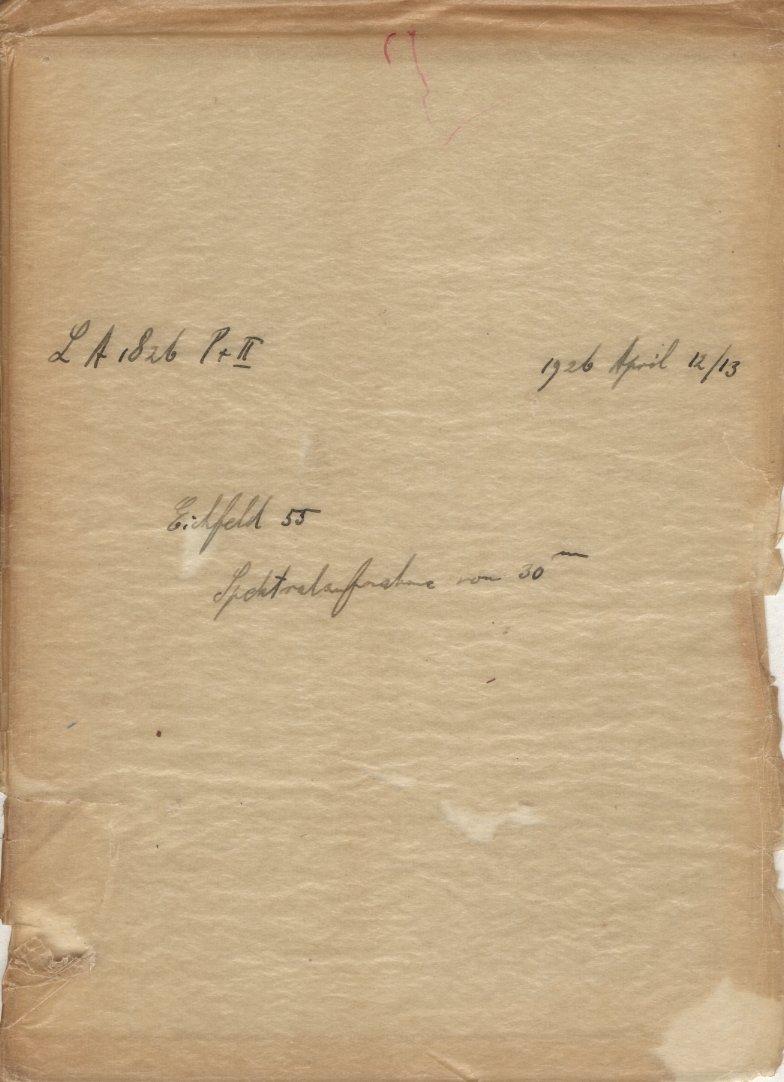 L A 1826 Pr II 1926 April 12/13
Eichfeld 55
Spektralaufnahme von 30ᵐ